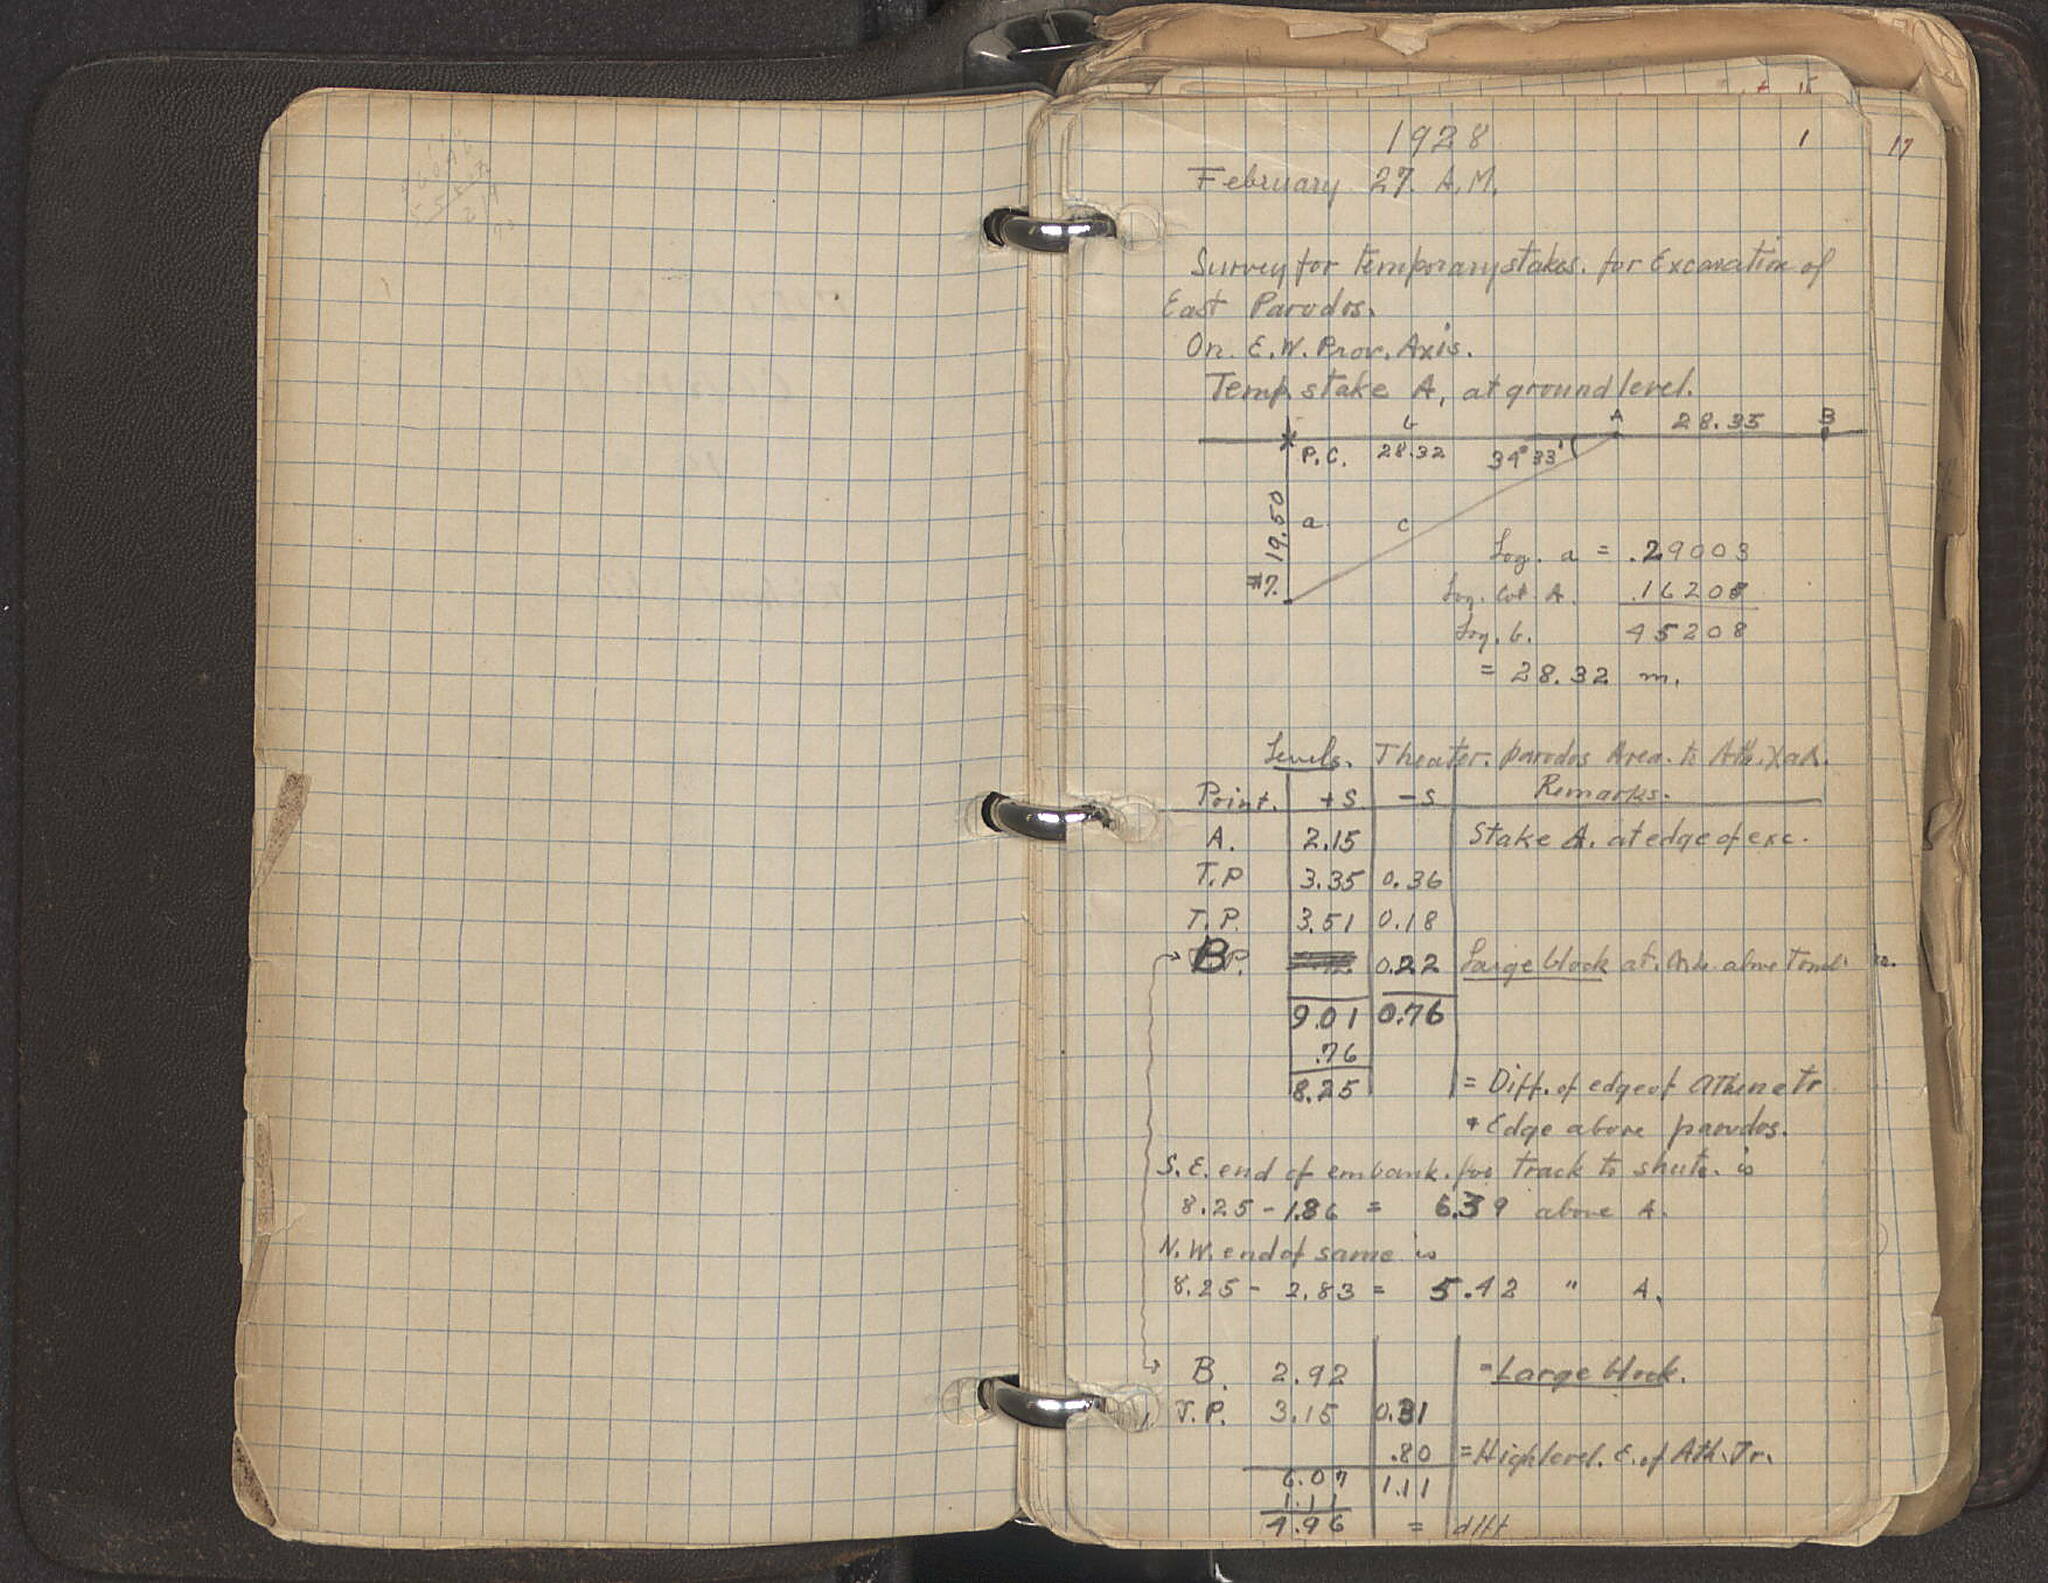 1928
1
17
February 27. A.M.
Survey for temporary stakes. for Excavation of
East Parodos.
On. E.W. Prov. Axis.
Temp. stake A, at ground level.
b A 28.35 B
P.C. 28.32 34° 33'
19.50 a c
#7.
Log. a = .29003
Log. Cot A. .16205
Log. b. 45208
= 28.32 m.
Levels. Theater. parodos Area. to Ath.
Point. +S -S Remarks.
A. 2.15 Stake A. at edge of exc.
T.P 3.35 0.36
T.P. 3.51 0.18
B 0.22 Large block at above
9.01 0.76
.76
8.25 = Diff. of edge of Athena tr
+ Edge above parodos.
S.E. end of embank. for track to shute. is
8.25 - 1.86 = 6.39 above A.
N.W. end of same is
8.25 - 2.83 = 5.42 " A.
B. 2.92 = Large block.
T.P. 3.15 0.31
.80 = High level. E. of Ath. Tr.
6.07 1.11
1.11
4.96 = diff